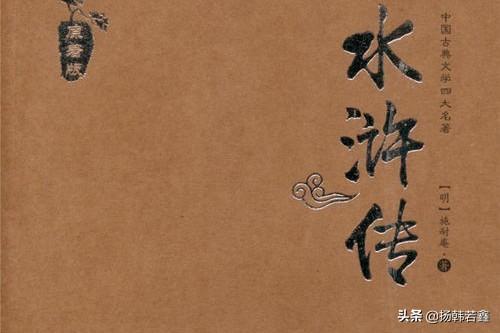 原著版
水浒传
中国古典文学四大名著
【明】施耐庵·著
头条 @扬韩若鑫